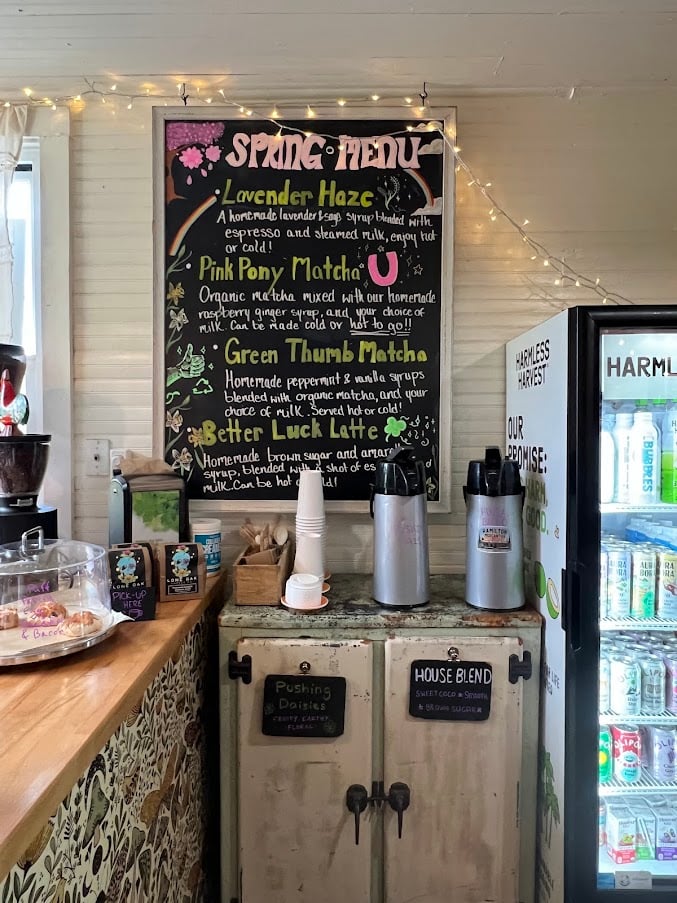 SPRING • MENU
• Lavender Haze
A homemade lavender & sage syrup blended with
espresso and steamed milk, enjoy hot
or cold!
• Pink Pony Matcha
Organic matcha mixed with our homemade
raspberry ginger syrup, and your choice of
milk. Can be made cold or hot to go!!
• Green Thumb Matcha
Homemade peppermint & vanilla syrups
blended with organic matcha, and your
choice of milk. Served hot or cold!
• Better Luck Latte
Homemade brown sugar and
syrup, blended with a shot of
milk. Can be hot cold!
HARMLESS
HARVEST
OUR
PROMISE:
HARML
LONE OAK
LONE OAK
PICK-UP
HERE
& Bacon
HAMILTON
Pushing
Daisies
FRUITY EARTHY
FLORAL
HOUSE BLEND
SWEET COCO SMOOTH
BROWN SUGAR
AURA
BORA